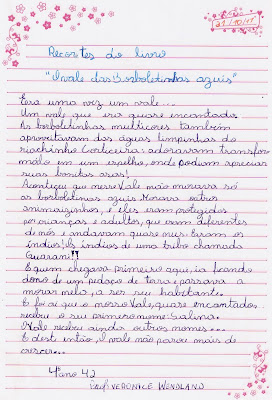 21/10/11
Recortes do livro
"O vale das borboletinhas azuis"
Era uma vez um vale...
Um vale que era quase encantado.
As borboletinhas multicores também
aproveitavam das águas limpinhas do
riachinho Corticeira, adoravam transfor-
málo em um espelho, onde podiam apreciar
suas bonitas asas!
Acontece que nesse Vale não morava só
as borboletinas azuis. Morava outros
animaizinhos, e eles eram protegidos
por crianças e adultos, que eram diferentes
de nós e andavam quase nus. Eram os
índios! Os índios de uma tribo chamada
Guarani!!
E quem chegava primeiro aqui, ia ficando
dono de um pedaço de terra e passava a
morar nele, a ser seu habitante.
E foi aí que o nosso Vale, quase encantado
recebeu o seu primeiro nome: Galina.
O Vale recebeu ainda outros nomes...
E desti então, O vale não parou mais de
crescer...
4º ano 42
Prof: VERONICE WENDLAND